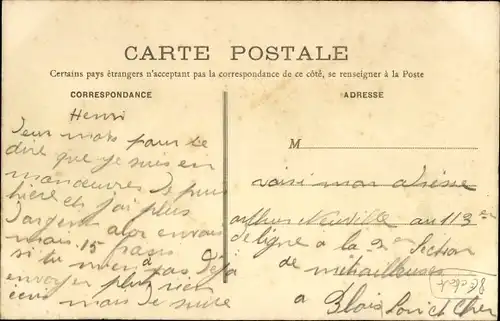 CARTE POSTALE
Certains pays étrangers n'acceptant pas la correspondance de ce côté, se renseigner à la Poste
CORRESPONDANCE
Henri
deux mots pour te
dire que je suis en
manœuvres depuis
hière et j'ai plus
d'argent alor envois
mois 15
si tu m'en a pas déjà
envoyer plus rien
écris mois de suite
ADRESSE
M
voisi mon adresse
au 113e
de ligne a la 2e Section
de mitrailleuses
a Blois Loir et Cher